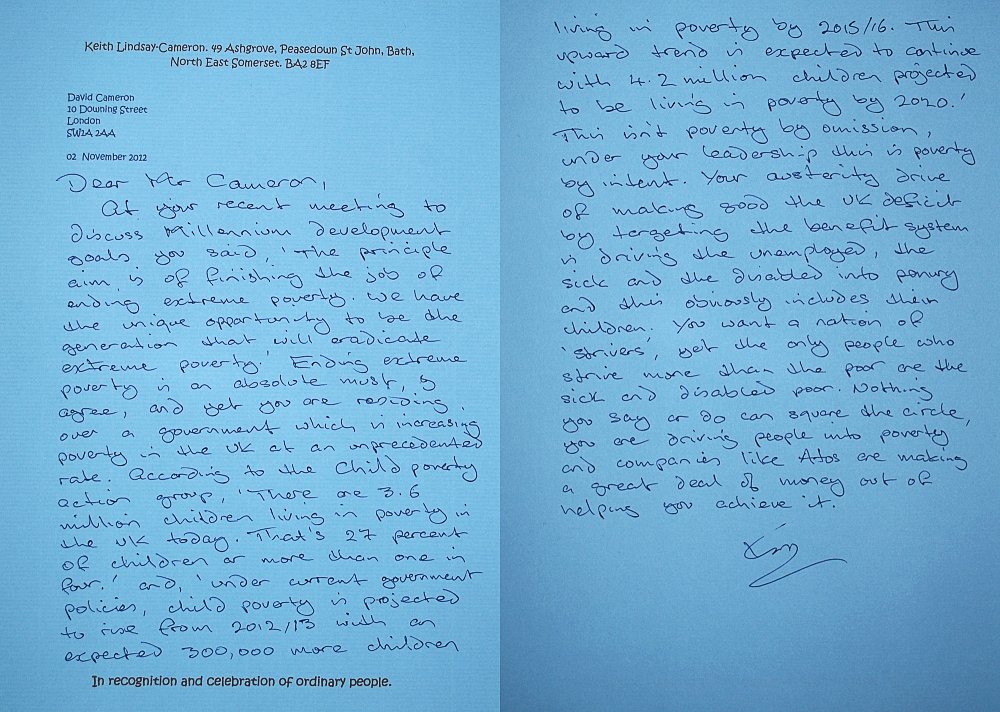 Keith Lindsay-Cameron. 49 Ashgrove, Peasedown St John, Bath,
North East Somerset. BA2 8EF
David Cameron
10 Downing Street
London
SW1A 2AA
02 November 2012
Dear Mr Cameron,
At your recent meeting to
discuss Millennium development
goals you said, 'The principle
aim is of finishing the job of
ending extreme poverty. We have
the unique opportunity to be the
generation that will eradicate
extreme poverty.' Ending extreme
poverty is an absolute must, I
agree, and yet you are residing
over a government which is increasing
poverty in the UK at an unprecedented
rate. According to the Child poverty
action group, 'There are 3.6
million children living in poverty in
the UK today. That's 27 percent
of children or more than one in
four.' and, 'under current government
policies, child poverty is projected
to rise from 2012/13 with an
expected 300,000 more children
In recognition and celebration of ordinary people.
living in poverty by 2015/16. This
upward trend is expected to continue
with 4.2 million children projected
to be living in poverty by 2020.'
This isn't poverty by omission,
under your leadership this is poverty
by intent. Your austerity drive
of making good the UK deficit
by targeting the benefit system
is driving the unemployed, the
sick and the disabled into penury
and this obviously includes their
children. You want a nation of
'strivers', yet the only people who
strive more than the poor are the
sick and disabled poor. Nothing
you say or do can square the circle,
you are driving people into poverty
and companies like Atos are making
a great deal of money out of
helping you achieve it.